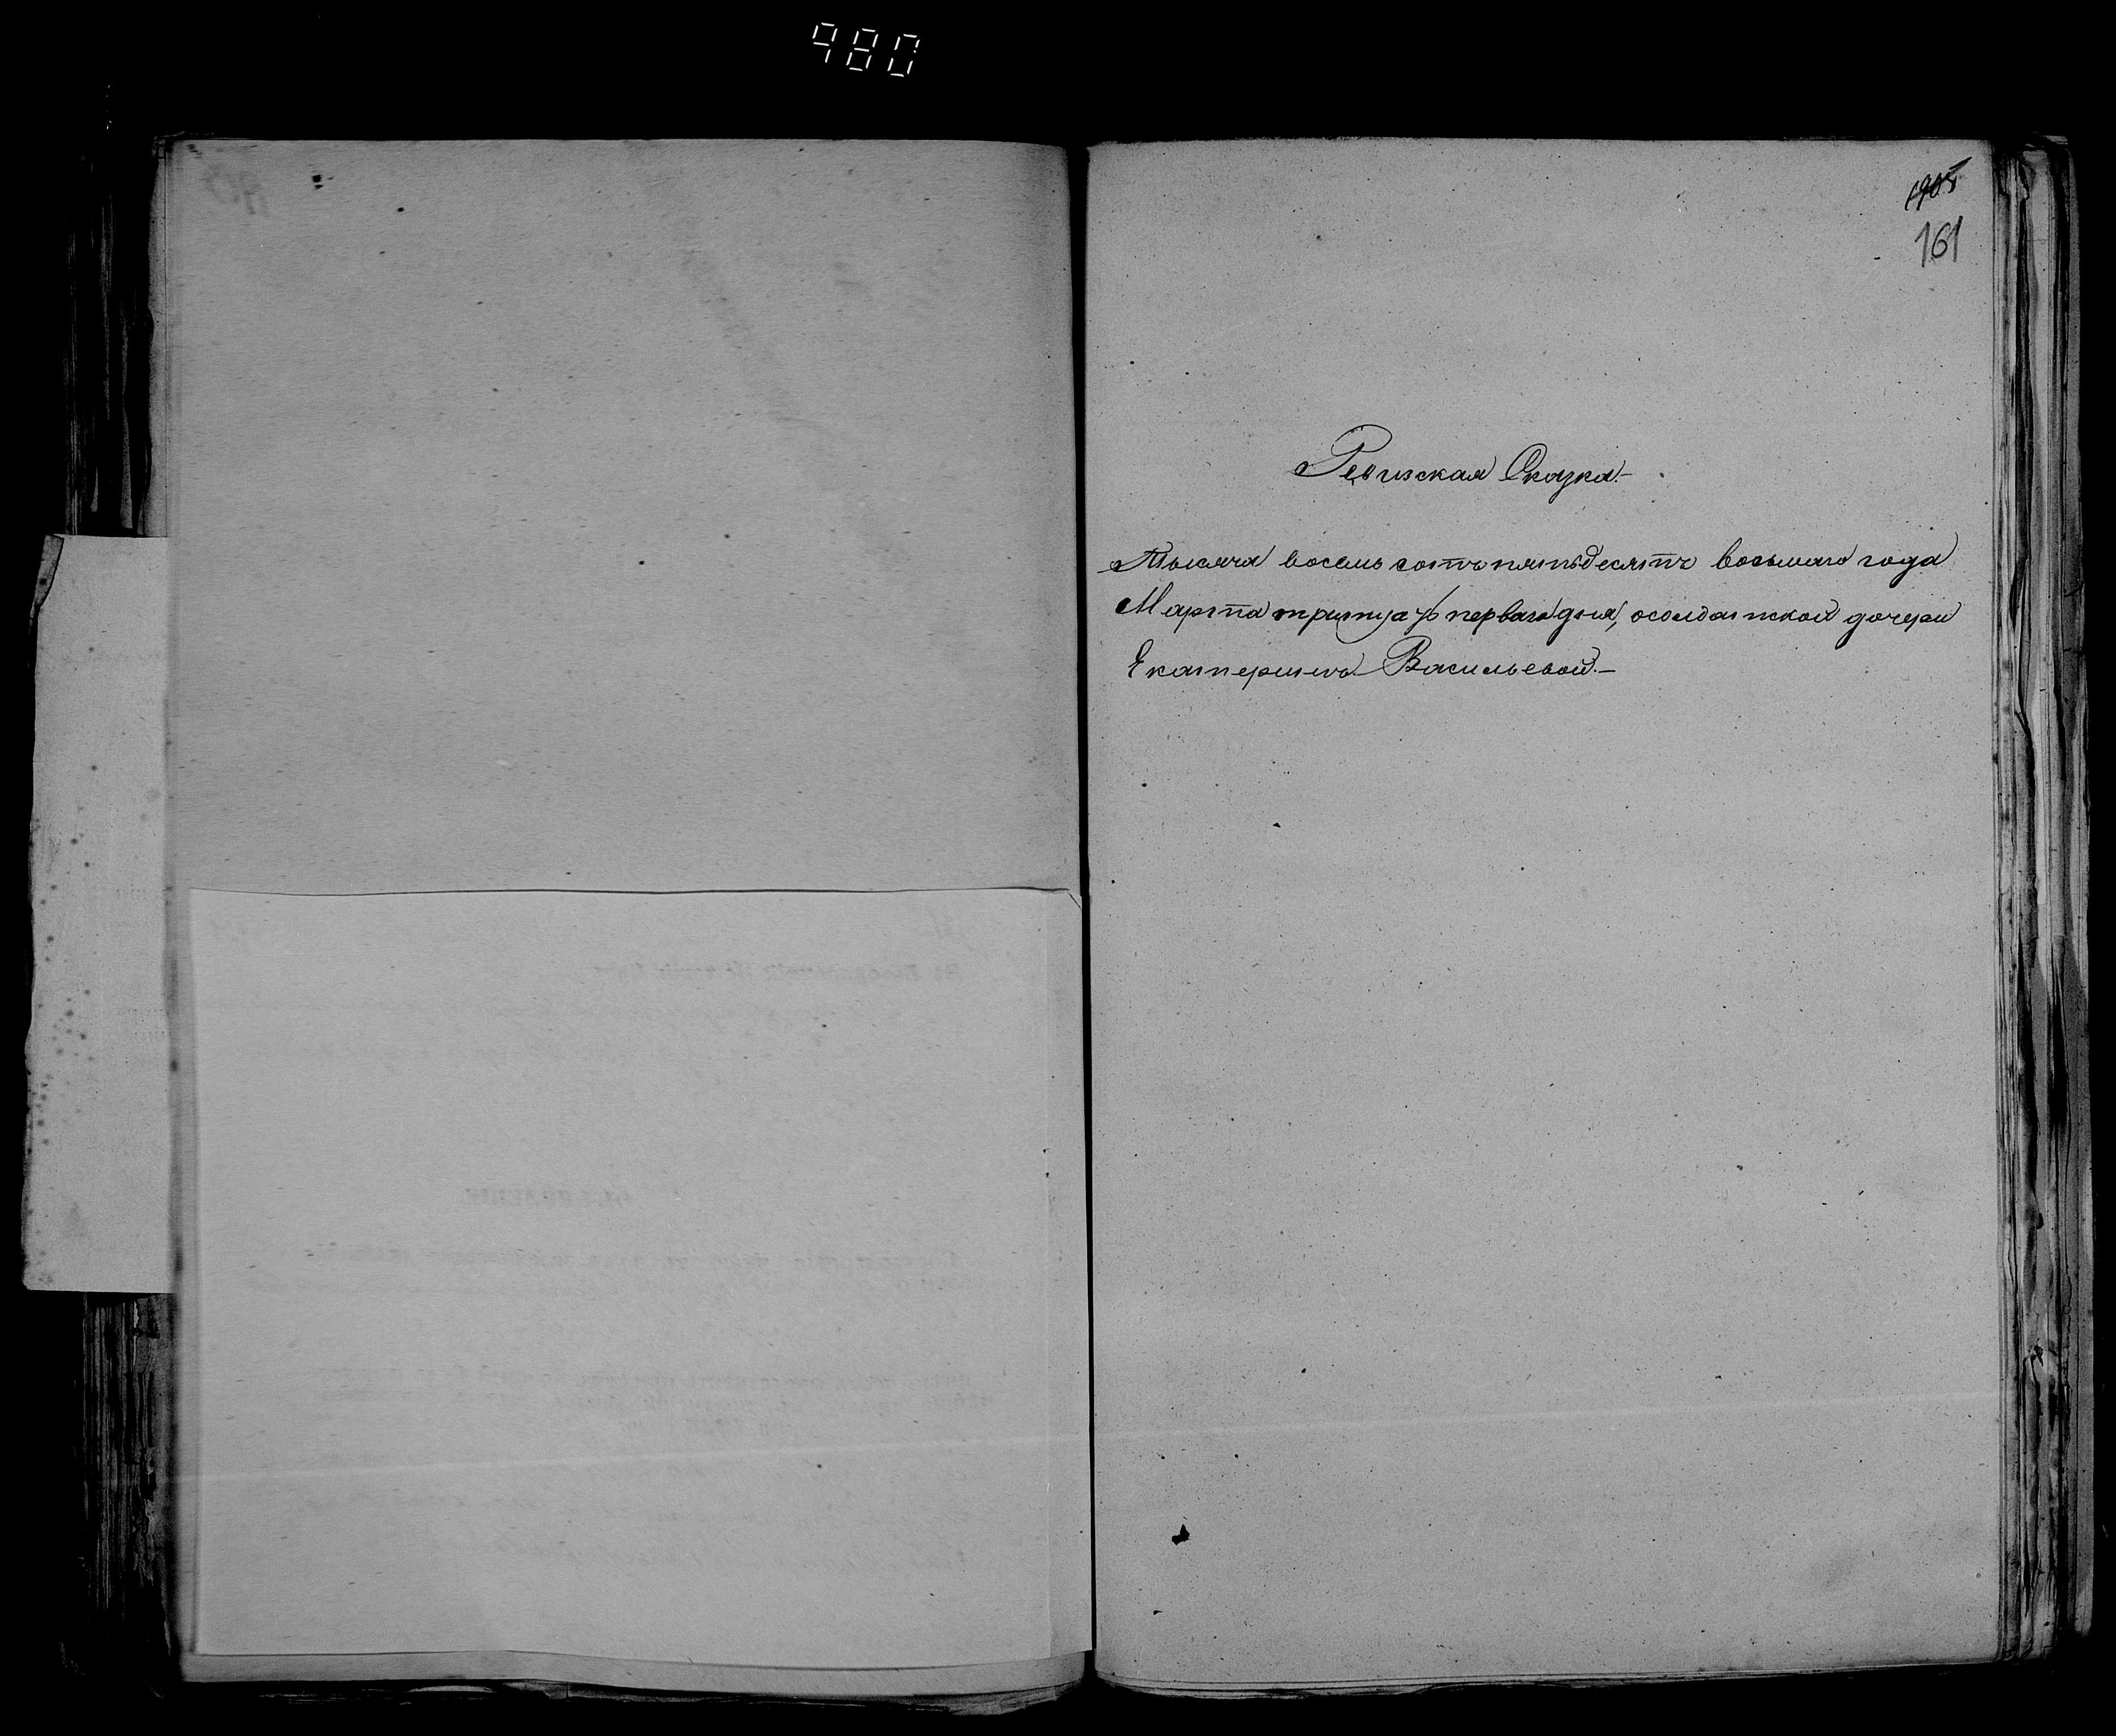 980
161
Ревизская Сказка.—
Тысяча восемь сотъ пятьдесятъ восьмаго года
Марта тридцать перваго дня, о солдатской дочери
Екатерине Васильевой.—